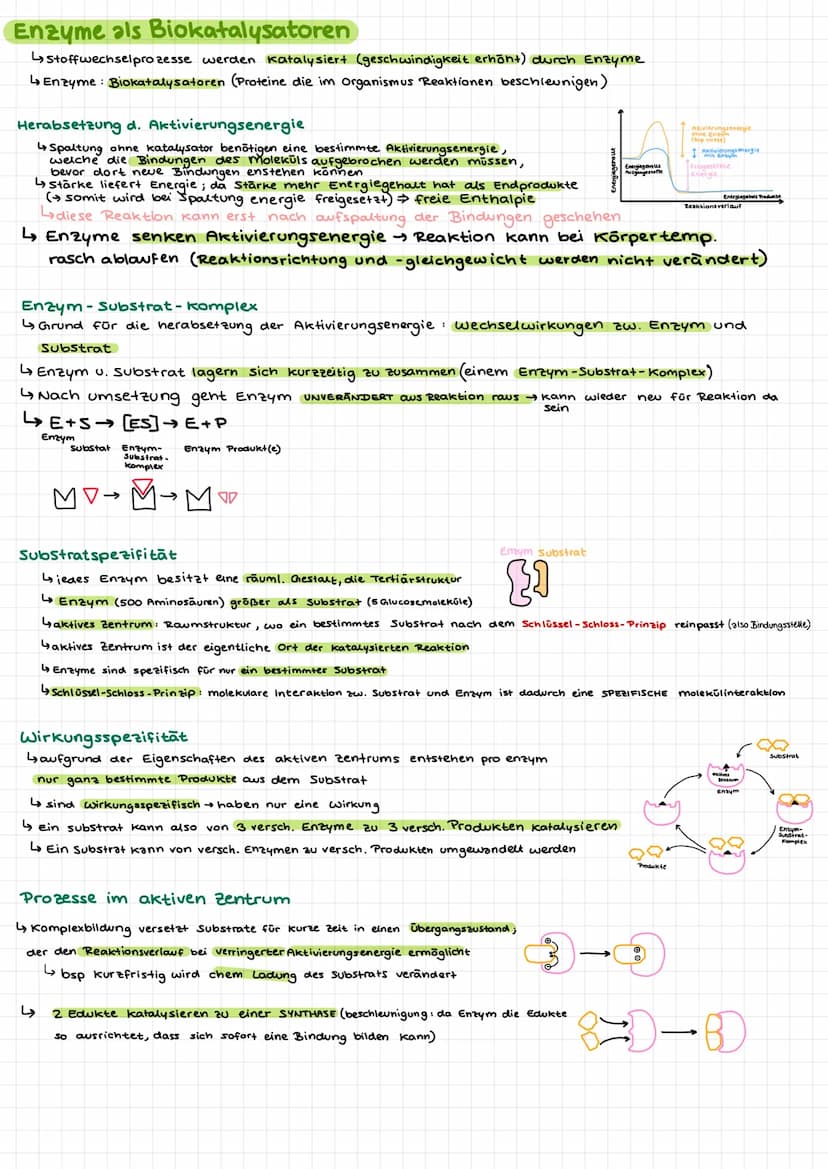 Enzyme als Biokatalysatoren
↳ Stoffwechselprozesse werden katalysiert (geschwindigkeit erhöht) durch Enzyme
↳ Enzyme : Biokatalysatoren (Proteine die im Organismus Reaktionen beschleunigen)
Herabsetzung d. Aktivierungsenergie
↳ Spaltung ohne Katalysator benötigen eine bestimmte Aktivierungsenergie,
welche die Bindungen des Moleküls aufgebrochen werden müssen,
bevor dort neue Bindungen enstehen können
↳ Stärke liefert Energie ; da Stärke mehr Energiegehalt hat als Endprodukte
(→ somit wird bei Spaltung energie freigesetzt) ⇒ freie Enthalpie
↳ diese Reaktion kann erst nach aufspaltung der Bindungen geschehen
↳ Enzyme senken Aktivierungsenergie → Reaktion kann bei Körpertemp.
rasch ablaufen (Reaktionsrichtung und -gleichgewicht werden nicht verändert)
Energiegehalt
Energiegehalt
Ausgangsstoffe
Aktivierungsenergie
ohne Enzym
Aktivierungsenergie
mit Enzym
freigesetzte
Energie
Energiegehalt Produkte
Reaktionsverlauf
Enzym - Substrat - Komplex
↳ Grund für die herabsetzung der Aktivierungsenergie : Wechselwirkungen zw. Enzym und
Substrat
↳ Enzym u. Substrat lagern sich kurzzeitig zu zusammen (einem Enzym-Substrat-Komplex)
↳ Nach umsetzung geht Enzym UNVERÄNDERT aus Reaktion raus → kann wieder neu für Reaktion da
sein
↳ E+S → [ES] → E+P
Enzym
Substat
Enzym-
Substrat-
Komplex
Enzym Produkt(e)
Substratspezifität
↳ jedes Enzym besitzt eine räuml. Gestalt, die Tertiärstruktur
↳ Enzym (500 Aminosäuren) größer als Substrat (5 Glucosemoleküle)
↳ aktives Zentrum : Raumstruktur, wo ein bestimmtes Substrat nach dem Schlüssel-Schloss-Prinzip reinpasst (also Bindungsstelle)
↳ aktives Zentrum ist der eigentliche Ort der katalysierten Reaktion
↳ Enzyme sind spezifisch für nur ein bestimmtes Substrat
↳ Schlüssel-Schloss-Prinzip : molekulare Interaktion zw. Substrat und Enzym ist dadurch eine SPEZIFISCHE molekülinteraktion
Enzym Substrat
Wirkungsspezifität
↳ aufgrund der Eigenschaften des aktiven Zentrums entstehen pro enzym
nur ganz bestimmte Produkte aus dem Substrat
↳ sind wirkungsspezifisch → haben nur eine Wirkung
↳ Ein substrat kann also von 3 versch. Enzyme zu 3 versch. Produkten katalysieren
↳ Ein Substrat kann von versch. Enzymen zu versch. Produkten umgewandelt werden
Substrat
aktives
Zentrum
Enzym
Enzym-
Substrat-
Komplex
Produkte
Prozesse im aktiven Zentrum
↳ Komplexbildung versetzt Substrate für kurze Zeit in einen Übergangszustand ;
der den Reaktionsverlauf bei verringerter Aktivierungsenergie ermöglicht
↳ bsp kurzfristig wird chem Ladung des Substrats verändert
↳ 2 Edukte katalysieren zu einer SYNTHASE (beschleunigung : da Enzym die Edukte
so ausrichtet, dass sich sofort eine Bindung bilden kann)